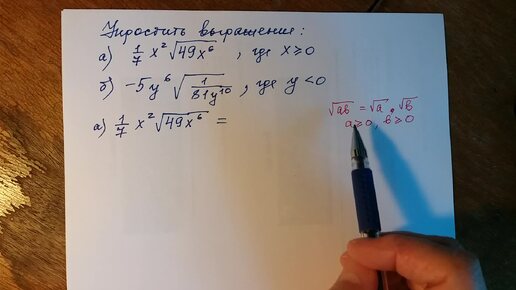 Упростить выражение:
а) 1/7 x²√(49x⁶) , где x≥0
б) -5y⁶√(1/(81y¹⁰)) , где y<0
а) 1/7 x²√(49x⁶) =
√(ab) = √a · √b
a≥0, b≥0